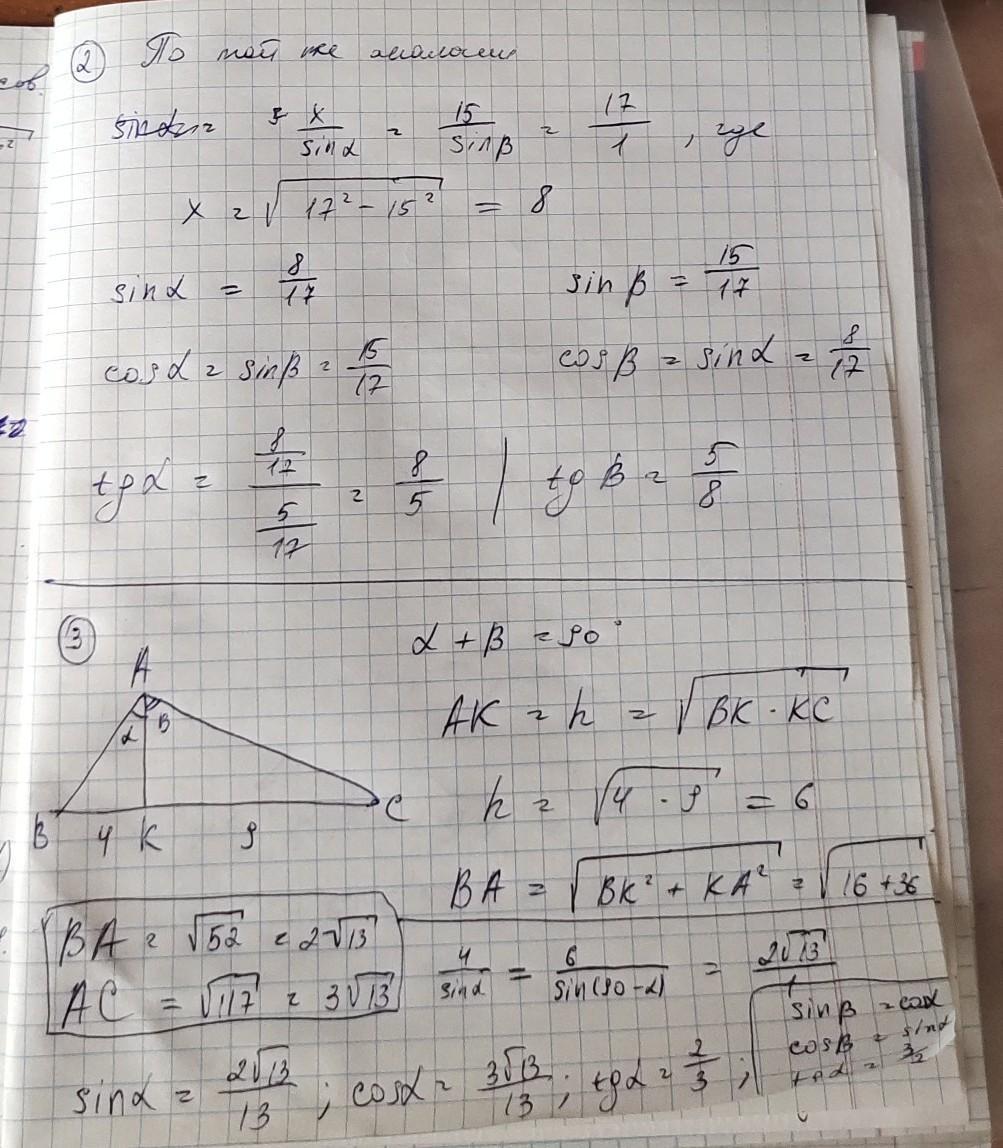 сов.
② По той же аналогии
sinα = x/sinα = 15/sinβ = 17/1 , где
x = √(17² - 15²) = 8
sinα = 8/17    sinβ = 15/17
cosα = sinβ = 15/17    cosβ = sinα = 8/17
tgα = (8/17)/(5/17) = 8/5 | tgβ = 5/8
③ α + β = 90°
A
α β
B 4 K 9 C
AK = h = √(BK · KC)
h = √(4 · 9) = 6
BA = √(BK² + KA²) = √(16 + 36)
BA = √52 = 2√13
AC = √117 = 3√13
4/sinα = 6/sin(90-α) = 2√13/1
sinα = 2√13/13 ; cosα = 3√13/13 ; tgα = 2/3 ;
sinβ = cosα
cosβ = sinα
tgα = 3/2